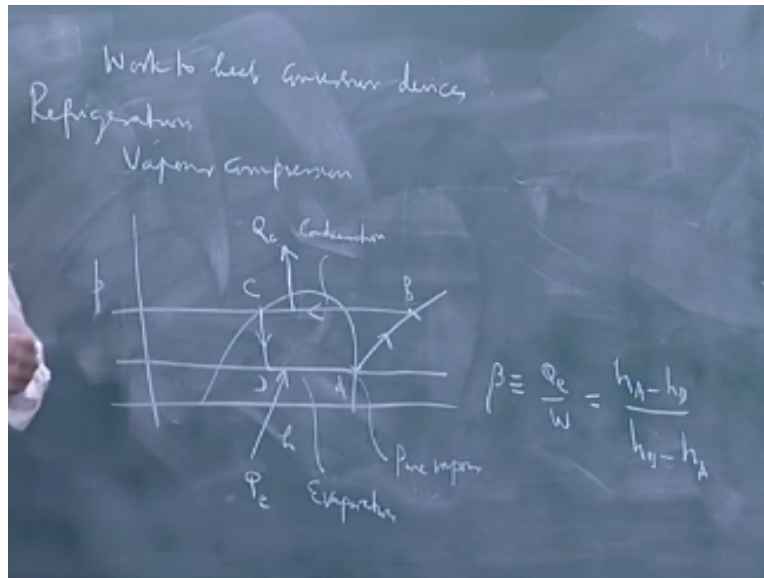 Work to heat conversion devices
Refrigeration
Vapour compression
Qc Condensation
p
C
B
D
A
h
Pure vapour
Qe
Evaporation
β ≡ Qe/W = (hA - hD)/(hB - hA)